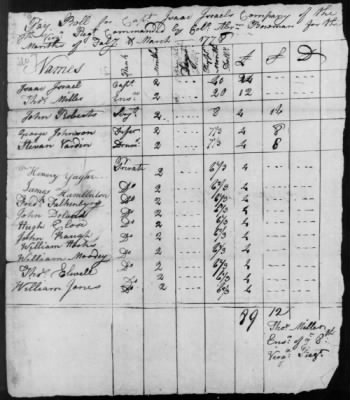 Pay Roll for Capt Isaac Israels Company of the
8th Virga Regt Commanded by Coll Abrm Bowman for the
Months of Feby & March
Names Rank Months £ S D
Isaac Israel Capt 2 40 24
Thos Miller Ensn 2 20 12
John Roberts Sergt 2 8 4 16
George Johnson 2 7⅓ 4 8
Stevan Vardin Drumr 2 7⅓ 4 8
Henry Yagher Private 2 6⅔ 4
James Hamillton Do 2 6⅔ 4
Fredk Falkenburg Do 2 6⅔ 4
John Doland Do 2 6⅔ 4
Hugh Do 2 6⅔ 4
John Do 2 6⅔ 4
William Do 2 6⅔ 4
William Moodey Do 2 6⅔ 4
Thos Elwell Do 2 6⅔ 4
William Jones Do 2 6⅔ 4
89 12
Thos Miller
Ensn of ye 8th
Virga Regt